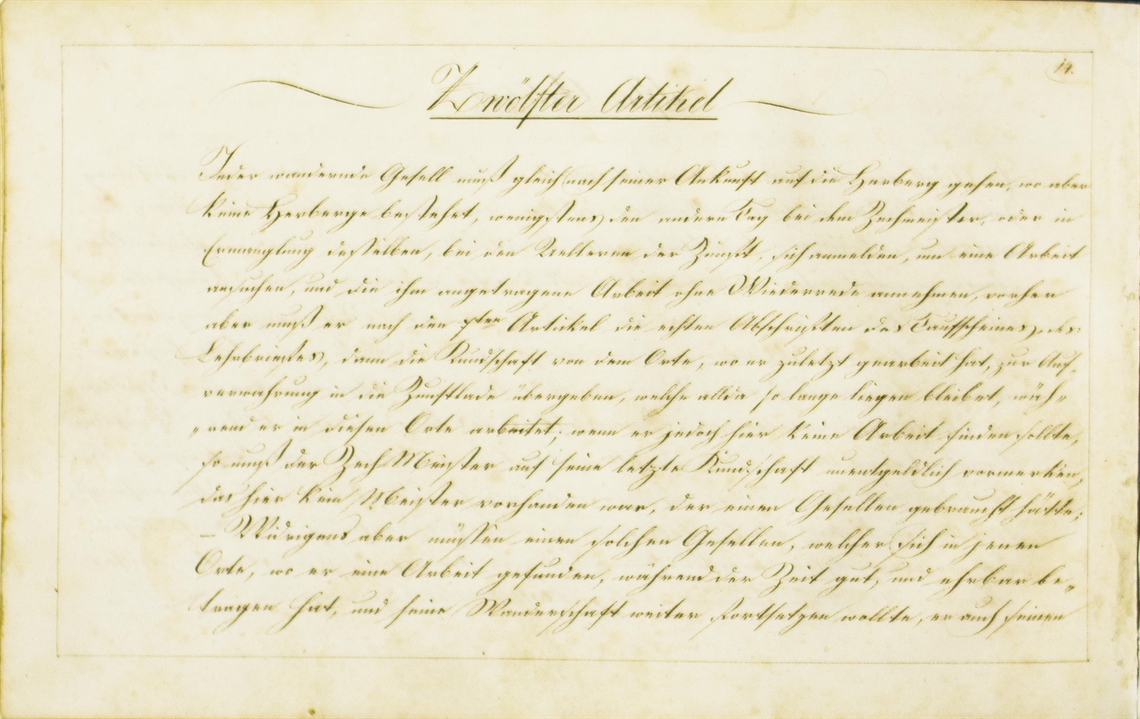 14.
Zwölfter Artikel
Jeder wandernde Gesell muß gleich nach seiner Ankunft auf die Herberg gehen, wo aber
keine Herberge bestehet, wenigstens den andern Tag bei dem Zechmeister, oder in
Ermanglung desselben, bei den Aeltern der Zunft, sich anmelden, um eine Arbeit
ansuchen, und die ihm angetragene Arbeit ohne Wiederrede annehmen, vorher
aber muß er nach den 7ten Artickel die echten Abschriften des Taufscheines, des
Lehrbriefes, dann die Kundschaft von dem Orte, wo er zuletzt gearbeit hat, zur Auf-
verwahrung in die Zunftlade übergeben, welche allda so lange liegen bleibet, wäh„
„rend er in diesen Orte arbeitet; wenn er jedoch hier keine Arbeit finden sollte,
so muß der Zech Meister auf seine letzte Kundschaft unentgeldlich vormerken,
das hier kein Meister vorhanden war, der einen Gesellen gebraucht hätte;
– Widrigens aber müssen einen solchen Gesellen, welcher sich in jenen
Orte, wo er eine Arbeit gefunden, während der Zeit gut, und ehrbar be„
tragen hat, und seine Wanderschaft weiter fortsetzen wollte, er auch seinen